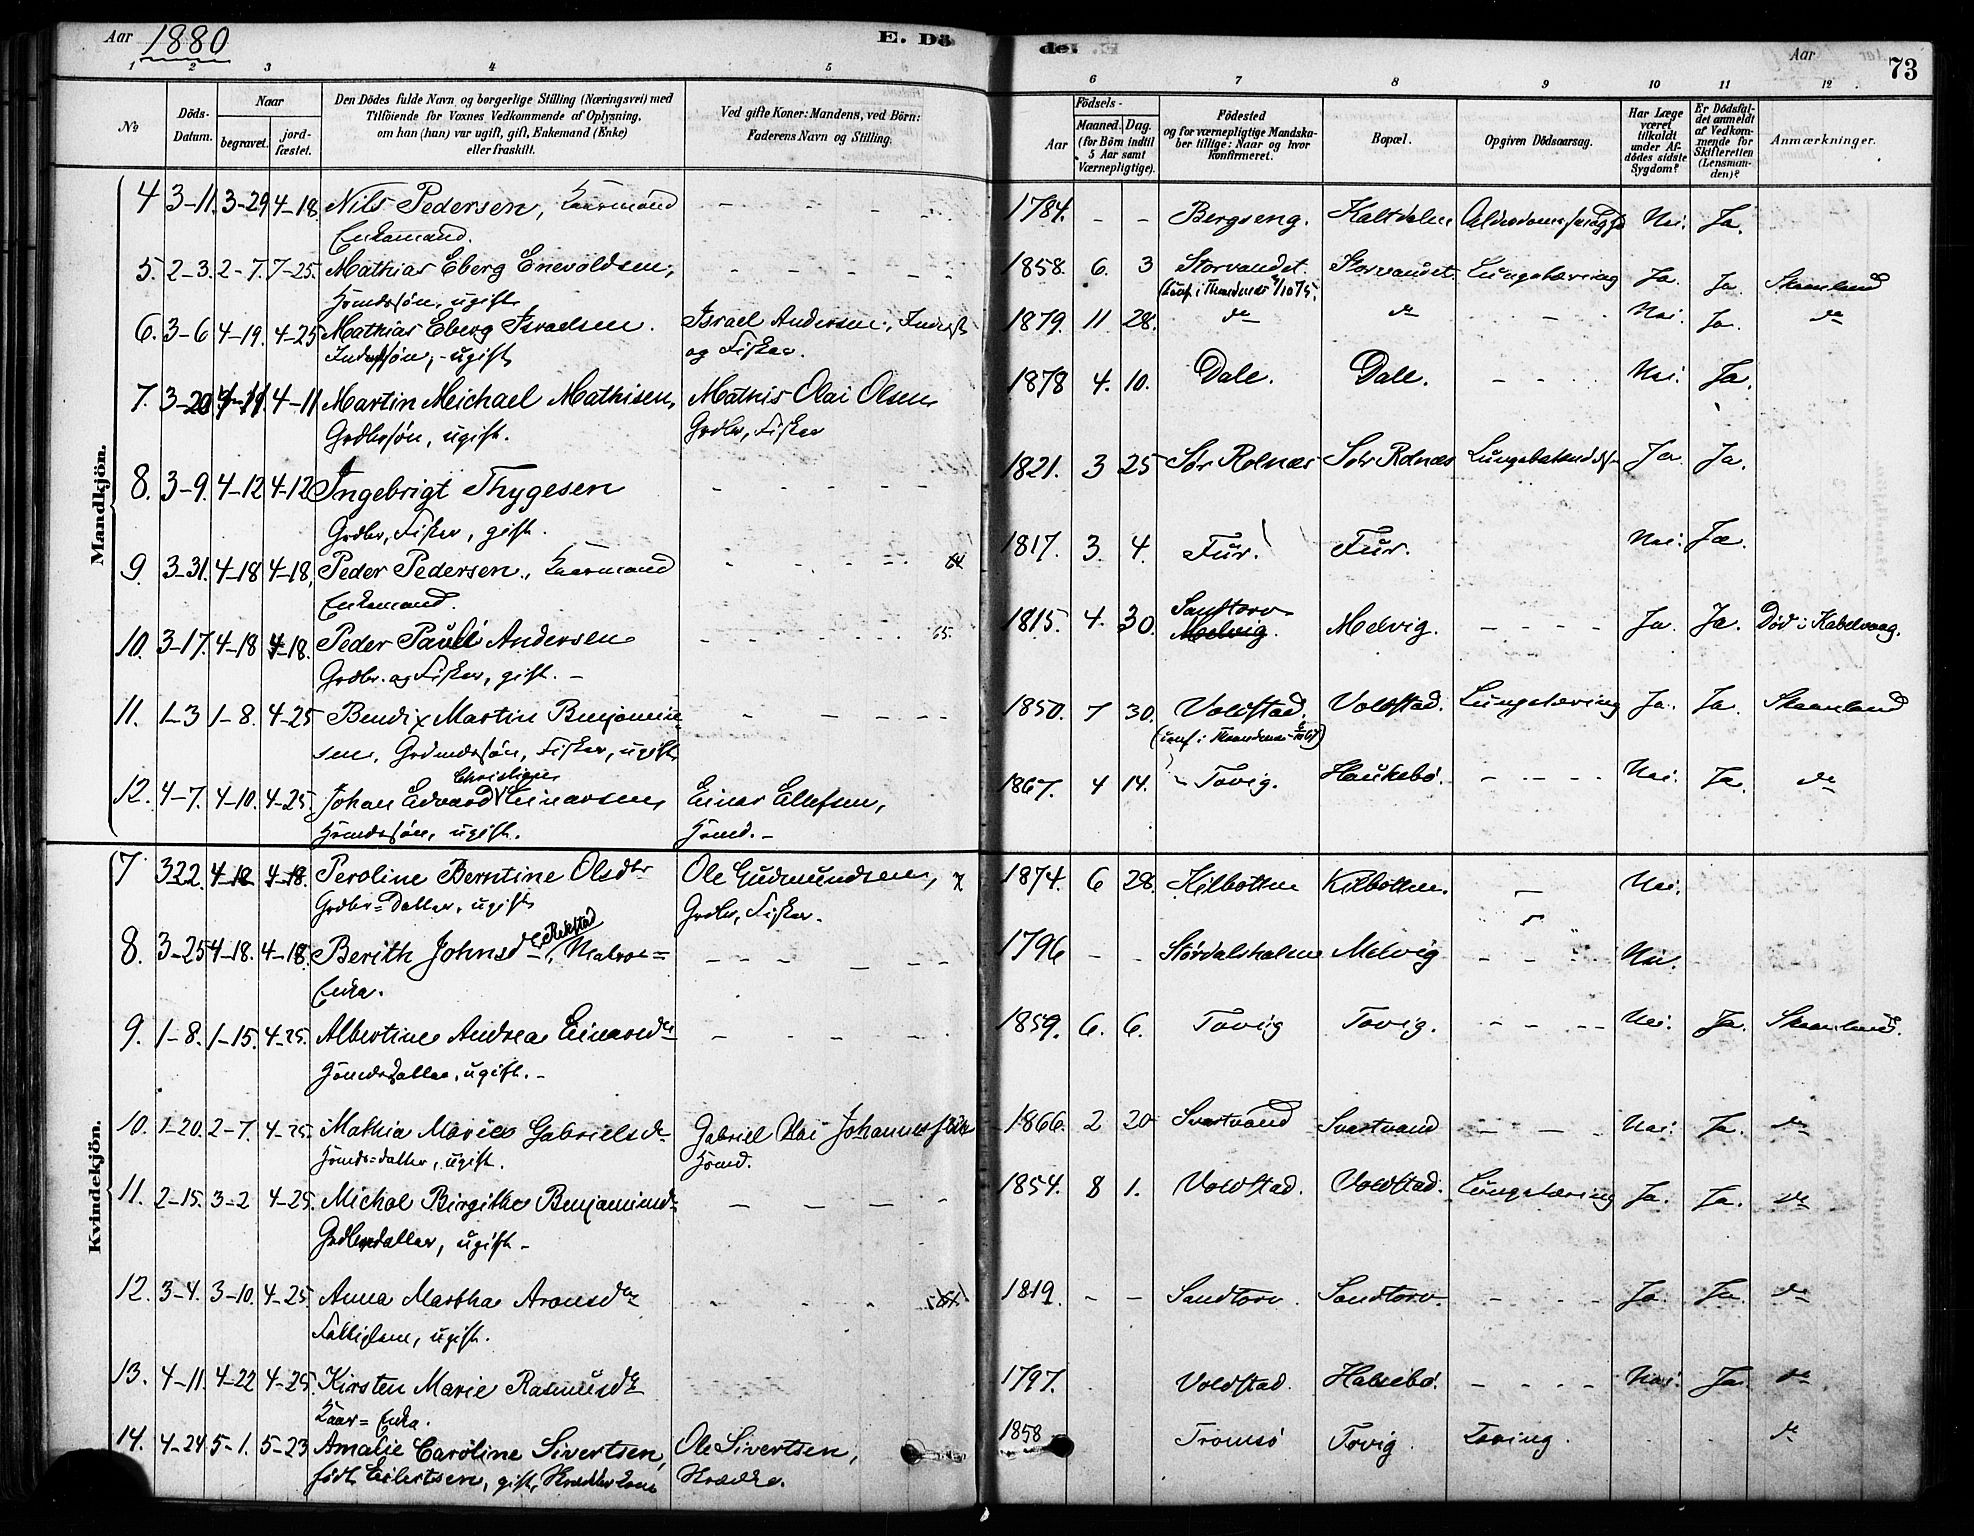 Aar 1880 E. Dö
de. Aar 73
1 2 3 4 5 6 7 8 9 10 11 12
No Döds-Datum. Naar begravet. jord-fæstet. Den Dödes fulde Navn og borgerlige Stilling (Næringsvei) med Tilföiende for Voxnes Vedkommende af Oplysning, om han (hun) var ugift, gift, Enkemand (Enke) eller fraskilt. Ved gifte Koner: Mandens, ved Börn: Faderens Navn og Stilling.
Födsels- Aar Maaned. Dag. (for Börn indtil 5 Aar samt Værnepligtige). Födested og for værnepligtige Mandskaber tillige: Naar og hvor konfirmeret. Bopæl. Opgiven Dödsaarsag. Har Læge været tilkaldt under Afdödes sidste Sygdom? Er Dödsfaldet anmeldt af Vedkommende for Skifteretten (Lensmanden)? Anmærkninger.
Mandkjön.
4 3-11. 3-29 4-18. Nils Pedersen, Kaarmand 1784. Bergseng. Nei. Ja.
Enkemand.
5. 2-3. 2-7. 7-25. Mathias Eberg Enevoldsen, 1858. 6. 3 Storvandet. Storvandet. Lungetæring Ja. Ja. Skaanland
ugift
6. 3-6 4-19. 4-25 Mathias Eberg Israelsen. Israel Andersen, 1879. 11 28. do do Nei. Ja. do
ugift og Fisker.
7. 3-20 4-11 4-11 Martin Meichael Mathisen, Mathis Olai Olsen 1878 4. 10. Dale. Dale. Nei. Ja.
Grdbrsøn, ugift. Grdbr, Fisker
8. 3-9. 4-12 4-12 Ingebrigt Thygesen 1821. 3 25 Sør Rolnæs Sør Rolnæs Ja. Ja.
Grdbr, Fisker, gift.
9. 3-31. 4-18 4-18. Peder Pedersen, Kaarmand 1817. 3. 4. Fur. Fur. Nei. Ja.
Enkemand.
10. 3-17. 4-18 4-18. Peder Pauli Andersen 1815. 4. 30. Sandtorv Melvig. Melvig. Ja. Ja. Død i Kabelvaag.
Grdbr. og Fisker, gift. -
11. 1-3 1-8. 4-25 Bendix Martin Benjamin- 1850. 7 30. Voldstad. Voldstad. Lungetæring Ja. Ja. Skaanland
sen, Fisker, ugift
12. 4-7. 4-10. 4-25. Johan Edvard Christian Einarsen, Einar Ellefsen, 1867. 4 14. Tovig. Haukebø. Nei. Ja. do
ugift.
Kvindekjön.
7 3-22. 4-18 4-18. Peroline Berntine Olsdtr Ole Gudmundsen, 1874. 6 28. Kilbotten Kilbotten. Nei.
Grdbr-Datter, ugift Grdbr, Fisker.
8. 3-25 4-18. 4-18. Berith Johnsdtr Rekstad, 1796 Melvig Nei.
Enke.
9. 1-8. 1-15. 4-25. Albertine Andrea Einarsdtr 1859. 6. 6. Tovig Tovig. Nei. Ja. Skaanland.
ugift. -
10. 1-20. 2-7. 4-25. Mathia Marie Gabrielsdtr Gabriel Olai 1866. 2 20 Svartvand Svartvand Nei. Ja. do
ugift.
11. 2-15. 3-2 4-25. Michal Birgithe Benjaminsdtr 1854. 8 1. Voldstad. Voldstad. Lungetæring Ja. Ja. do
Grdbrdatter, ugift -
12. 3-4. 3-10. 4-25. Anna Martha Aronsdtr 1819. Sandtorv. Sandtorv. Ja. Ja. do
Fattiglem, ugift.
13. 4-11. 4-22 4-25. Kirsten Marie Rasmusdtr 1797. Voldstad. Nei. Ja. do
Kaar-Enke.
14. 4-24 5-1. 5-23 Amalie Caroline Sivertsen, Ole Sivertsen, 1858 Tromsø Tovig. Tæring. do
født Eilertsen, gift,